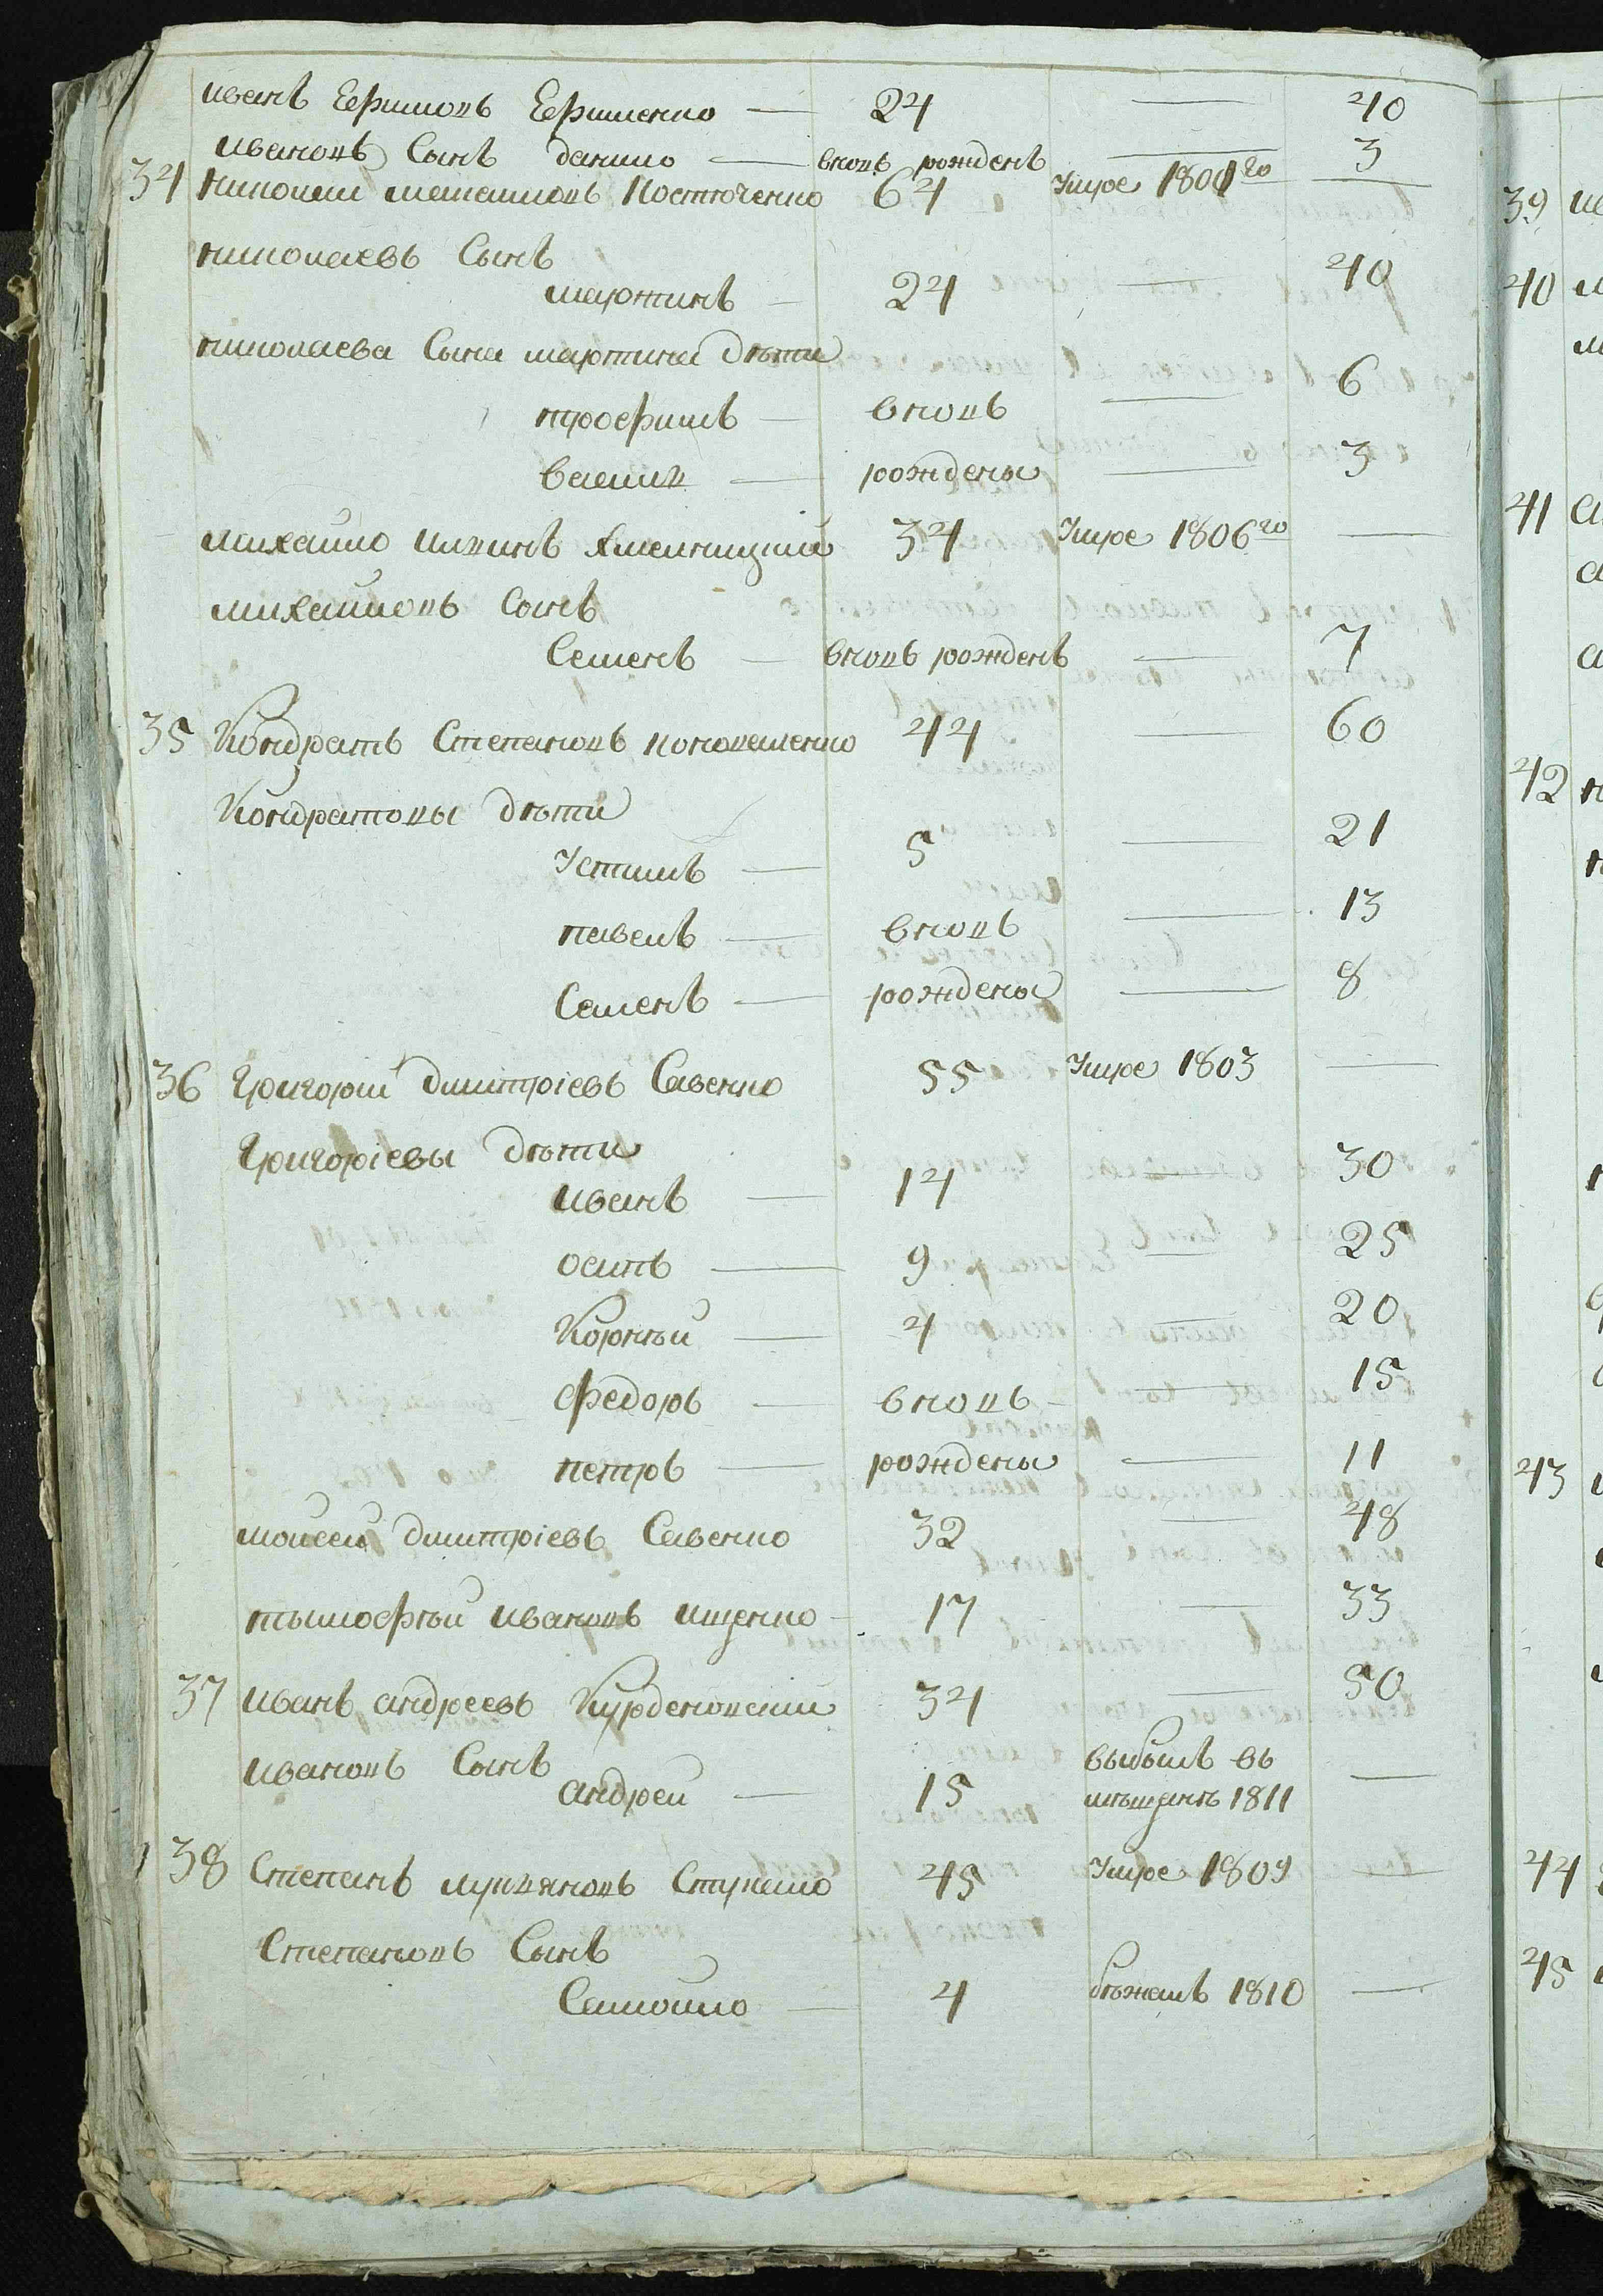 иванъ Ефимовъ Ефименко — 24 — 40
ивановъ Сынъ данило — вновь рожденъ — 3
34 николай Костюченко 64 Умре 1801го —
николаевъ Сынъ
мартинъ — 24 — 40
николаева Сына мартина дѣти
трофимъ — вновь — 6
василь — рождены — 3
михайло илпинъ хмелницкий 34 Умре 1806го —
михайловъ сынъ
Семенъ — вновь рожденъ — 7
35 Кондратъ Степановъ коноваленко 44 — 60
Кондратовы дѣти
Устимъ — 5 — 21
павелъ — вновь — 13
Семенъ — рождены — 8
36 Григорий дмитріевъ Савенко 55 Умре 1803 —
Григоріевы дѣти
иванъ — 14 — 30
осипъ — 9 — 25
Корнѣй — 4 — 20
федоръ — вновь — 15
петръ — рождены — 11
мойсей дмитріевъ Савенко 32 — 48
тымофѣй ивановъ ищенко — 17 — 33
37 иванъ андреевъ Курденовский 34 — 50
ивановъ Сынъ
андрей — 15 выбылъ въ —
мѣщанѣ 1811
38 Степанъ лукъяновъ Ступало 45 Умре 1809 —
Степановъ Сынъ
Самойло — 4 бѣжалъ 1810 —
39
40
41
42
43
44
45